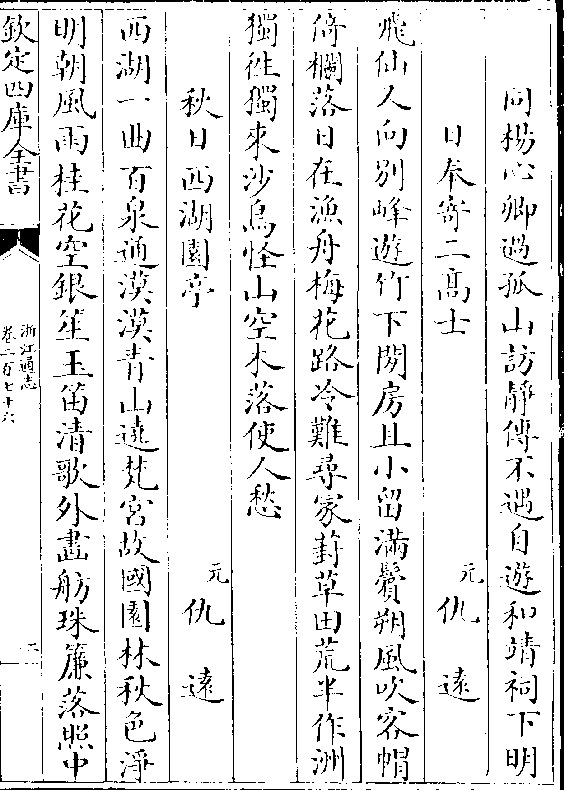 同楊心卿過孤山訪靜傳不遇自遊和靖祠下明
日奉寄二髙士　元仇遠
飛仙人向别峰遊竹下閑房且小留滿鬢朔風吹客帽
倚欄落日在漁舟梅花路冷難尋冢葑草田荒半作洲
獨徃獨來沙鳥怪山空木落使人愁
秋日西湖園亭　元仇遠
西湖一曲百泉通漠漠青山遶梵宫故國園林秋色淨
明朝風雨桂花空銀笙玉笛清歌外畫舫珠簾落照中
欽定四庫全書
浙江通志
卷二百七十六
二